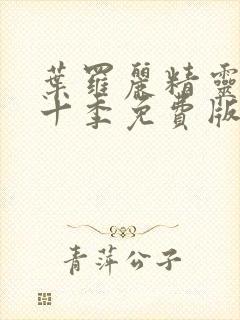 葉羅麗精靈
十季免費版
青萍公子